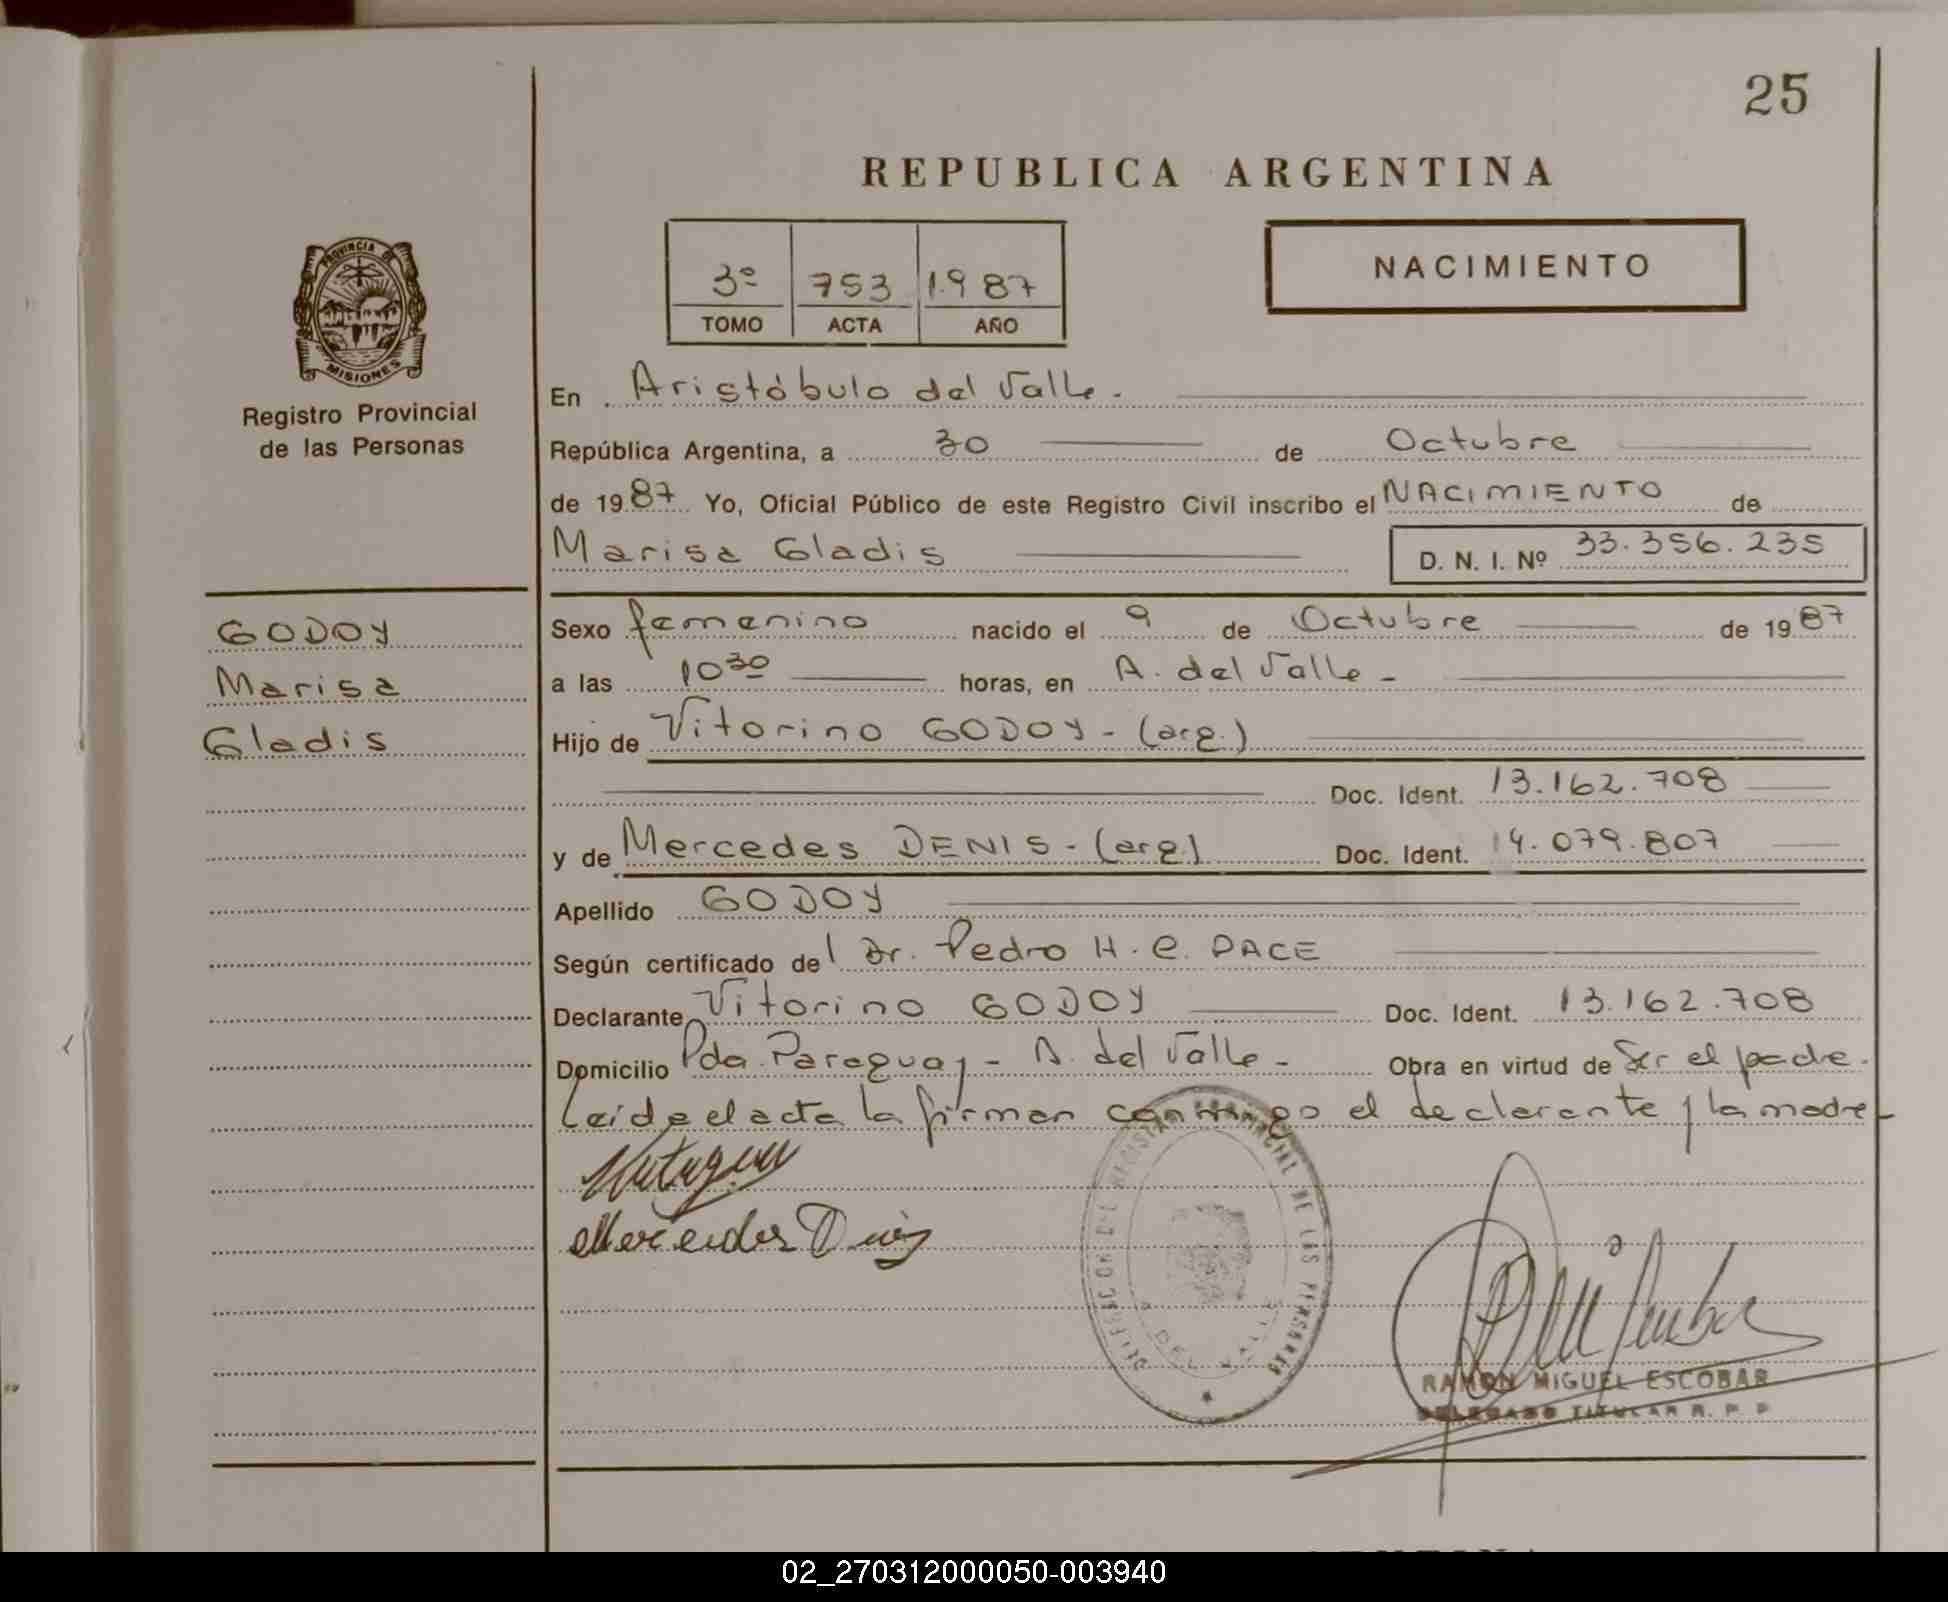 25
REPUBLICA ARGENTINA
3º 753 1.987
TOMO ACTA AÑO
NACIMIENTO
PROVINCIA DE
MISIONES
Registro Provincial
de las Personas
En Aristóbulo del Valle.
República Argentina, a 30 de Octubre
de 1987 Yo, Oficial Público de este Registro Civil inscribo el NACIMIENTO de
Marisa Gladis D. N. I. Nº 33.356.235
GODOY
Marisa
Gladis
Sexo femenino nacido el 9 de Octubre de 1987
a las 10 30 horas, en A. del Valle -
Hijo de Vitorino GODOY - (arg.)
Doc. Ident. 13.162.708
y de Mercedes DENIS - (arg) Doc. Ident. 14.079.807
Apellido GODOY
Según certificado del Dr. Pedro H. C. PACE
Declarante Vitorino GODOY Doc. Ident. 13.162.708
Domicilio Pda. Paraguay - A. del Valle - Obra en virtud de Ser el padre.
Leida el acta la firman conmigo el declarante y la madre
Mercedes
DELEGACION DEL REGISTRO PROVINCIAL DE LAS PERSONAS
A. DEL VALLE
RAMON MIGUEL ESCOBAR
DELEGADO TITULAR R. P. P.
02_270312000050-003940